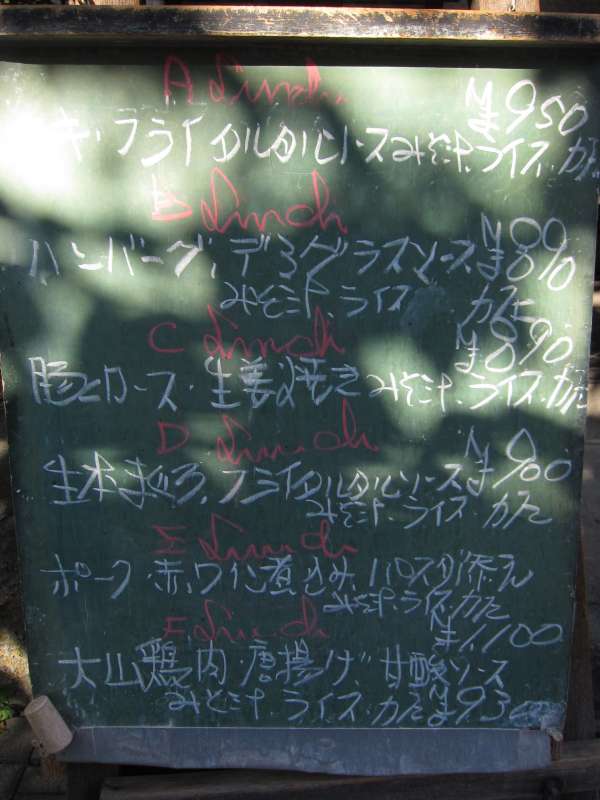 A Lunch
カキフライ タルタルソース みそ汁.ライス.カフェ ¥950
B Lunch
ハンバーグ,デミグラスソース ¥890
みそ汁.ライス カフェ
C Lunch
¥890
豚ロース・生姜焼き みそ汁.ライス.カフェ
D Lunch
生本まぐろ.フライタルタルソース ¥900
みそ汁.ライス.カフェ
E Lunch
ポーク・赤ワイン煮込み.パスタ添え
みそ汁.ライス.カフェ
¥1,100
F Lunch
大山鶏肉・唐揚げ.甘酸ソース
みそ汁.ライス.カフェ ¥930